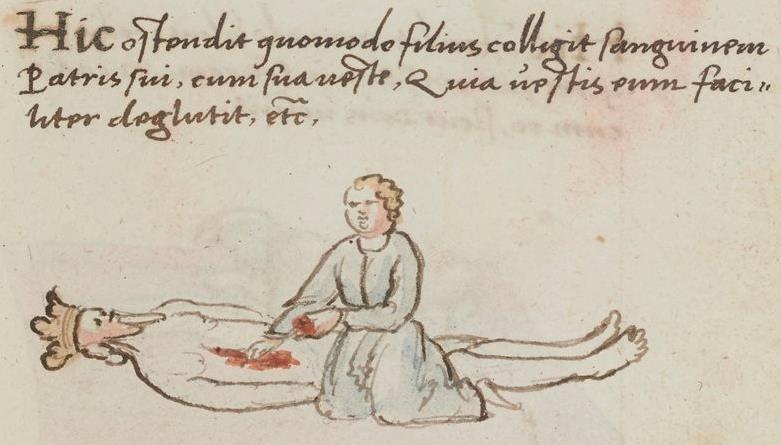 Hic ostendit quomodo filius colligit sanguinem
Patris sui, cum sua ueste, Quia uestis eum faci=
liter deglutit, etc̄,